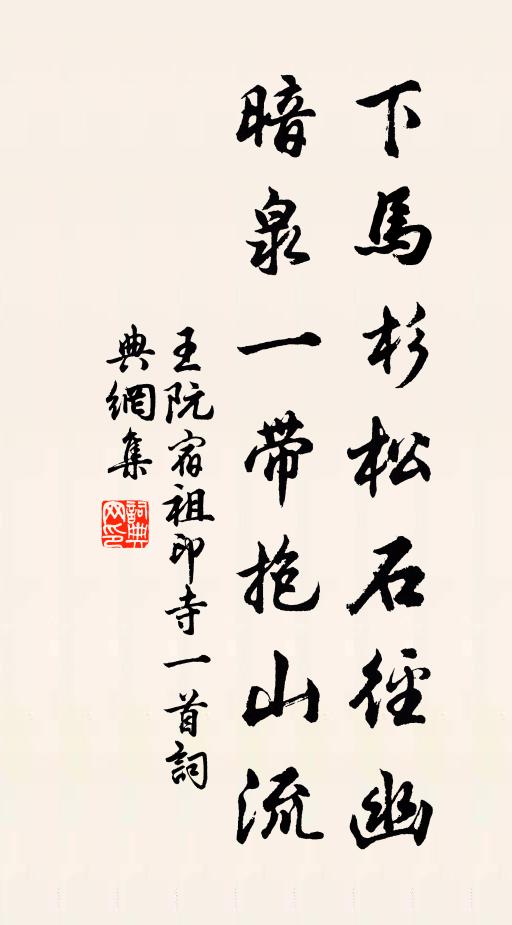 下馬杉松石徑幽
暗泉一带抱山流
王阮宿祖印寺一首詞
典網集
詞典
网印